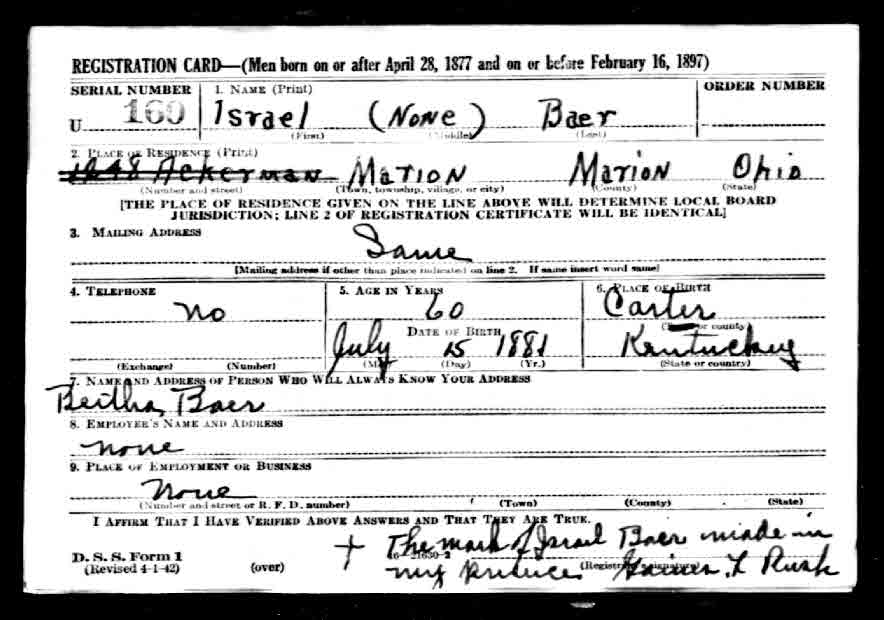 REGISTRATION CARD—(Men born on or after April 28, 1877 and on or before February 16, 1897)
SERIAL NUMBER 1. NAME (Print) ORDER NUMBER
U 169 Israel (None) Baer
(First) (Middle) (Last)
2. PLACE OF RESIDENCE (Print)
1048 Ackerman Marion Marion Ohio
(Number and street) (Town, township, village, or city) (County) (State)
[THE PLACE OF RESIDENCE GIVEN ON THE LINE ABOVE WILL DETERMINE LOCAL BOARD
JURISDICTION; LINE 2 OF REGISTRATION CERTIFICATE WILL BE IDENTICAL]
3. MAILING ADDRESS
Same
[Mailing address if other than place indicated on line 2. If same insert word same]
4. TELEPHONE 5. AGE IN YEARS 6. PLACE OF BIRTH
No 60 Carter
DATE OF BIRTH (Town or county)
July 15 1881 Kentucky
(Exchange) (Number) (Mo.) (Day) (Yr.) (State or country)
7. NAME AND ADDRESS OF PERSON WHO WILL ALWAYS KNOW YOUR ADDRESS
Bertha Baer
8. EMPLOYER'S NAME AND ADDRESS
none
9. PLACE OF EMPLOYMENT OR BUSINESS
None
(Number and street or R. F. D. number) (Town) (County) (State)
I AFFIRM THAT I HAVE VERIFIED ABOVE ANSWERS AND THAT THEY ARE TRUE.
+ The mark of Israel Baer made in
D. S. S. Form 1 16—21630-2
(Revised 4-1-42) (over) my (Registrant's signature) L Rush